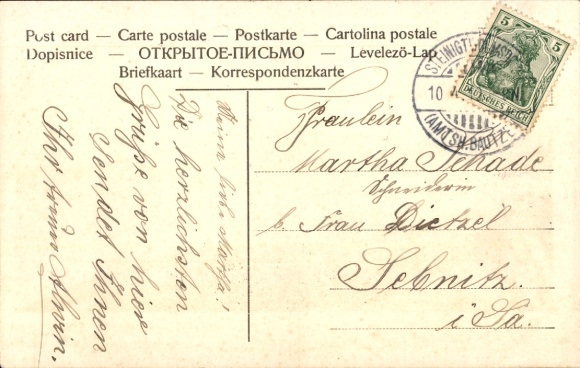 Post card — Carte postale — Postkarte — Cartolina postale
Dopisnice — ОТКРЫТОЕ-ПИСЬМО — Levelezö-Lap
Briefkaart — Korrespondenzkarte
5 5
DEUTSCHES REICH
STEINIGT
10
(AMTSH. BAUTZ
Fräulein
Martha Schade
Schneiderin
b. Frau Dietzel
Sebnitz.
i Sa.
Meine liebe Martha!
Die herzlichsten
Grüße von hier
sendet Ihnen
Ihr